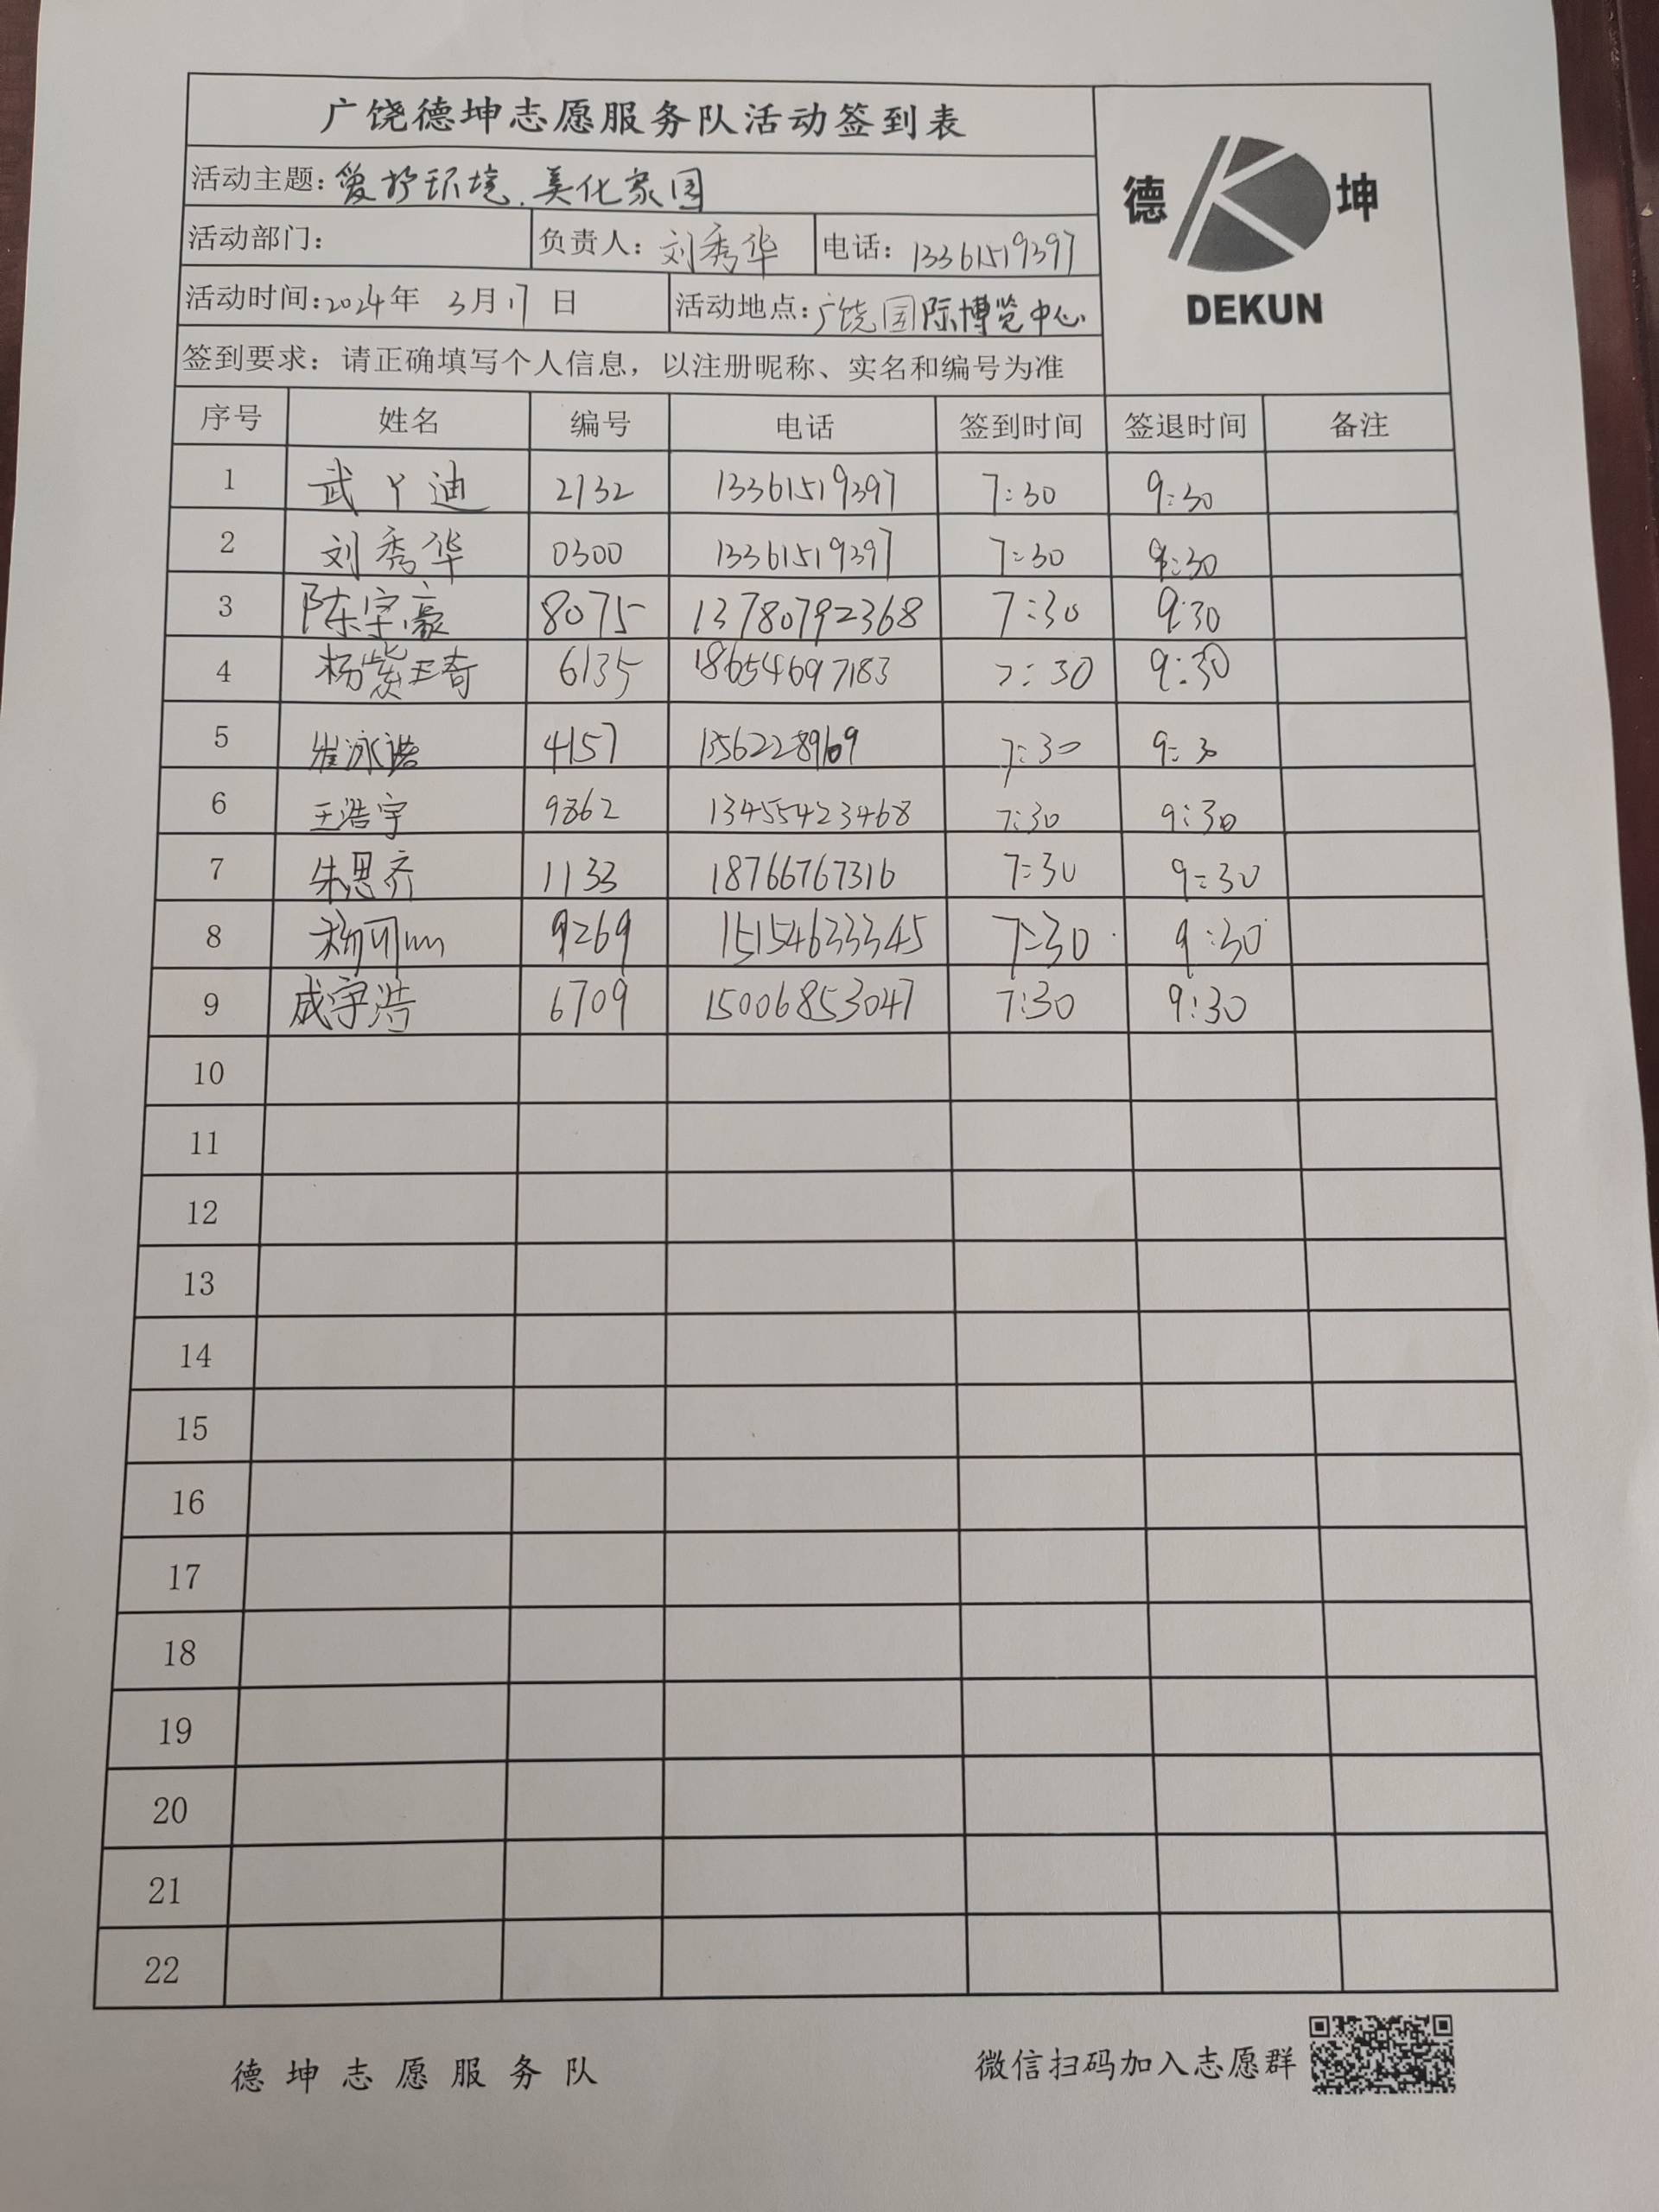 广饶德坤志愿服务队活动签到表
德 坤
DEKUN
活动主题：爱护环境.美化家园
活动部门： 负责人：刘秀华 电话：13361519397
活动时间：2024年 3月17日 活动地点：广饶国际博览中心
签到要求：请正确填写个人信息，以注册昵称、实名和编号为准
序号 姓名 编号 电话 签到时间 签退时间 备注
1 武丫迪 2132 13361519397 7:30 9:30
2 刘秀华 0300 13361519397 7:30 9:30
3 陈宇豪 8075 13780792368 7:30 9:30
4 杨紫琦 6135 18654697183 7:30 9:30
5 崔泳诺 4157 7:30 9:30
6 王浩宇 9862 13455423468 7:30 9:30
7 朱思齐 1133 18766767316 7:30 9:30
8 9269 15154633345 7:30 9:30
9 成宇浩 6709 15006853047 7:30 9:30
10
11
12
13
14
15
16
17
18
19
20
21
22
德坤志愿服务队 微信扫码加入志愿群